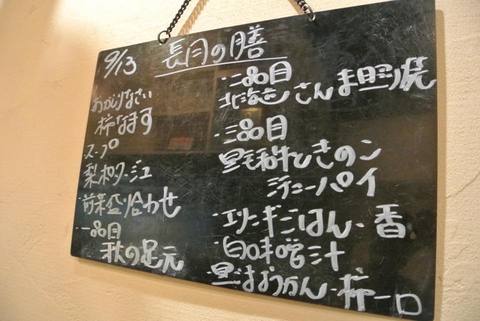 9/13 長月の膳
おかえりなさい
柿なます
スープ
梨ポタージュ
前菜盛り合わせ
一品目
秋の足元
・二品目
北海道 さんま照り焼
・三品目
黒毛和牛ときのこ
シチューパイ
・エリンギごはん・香
・白味噌汁
・黒ようかん・柿一口